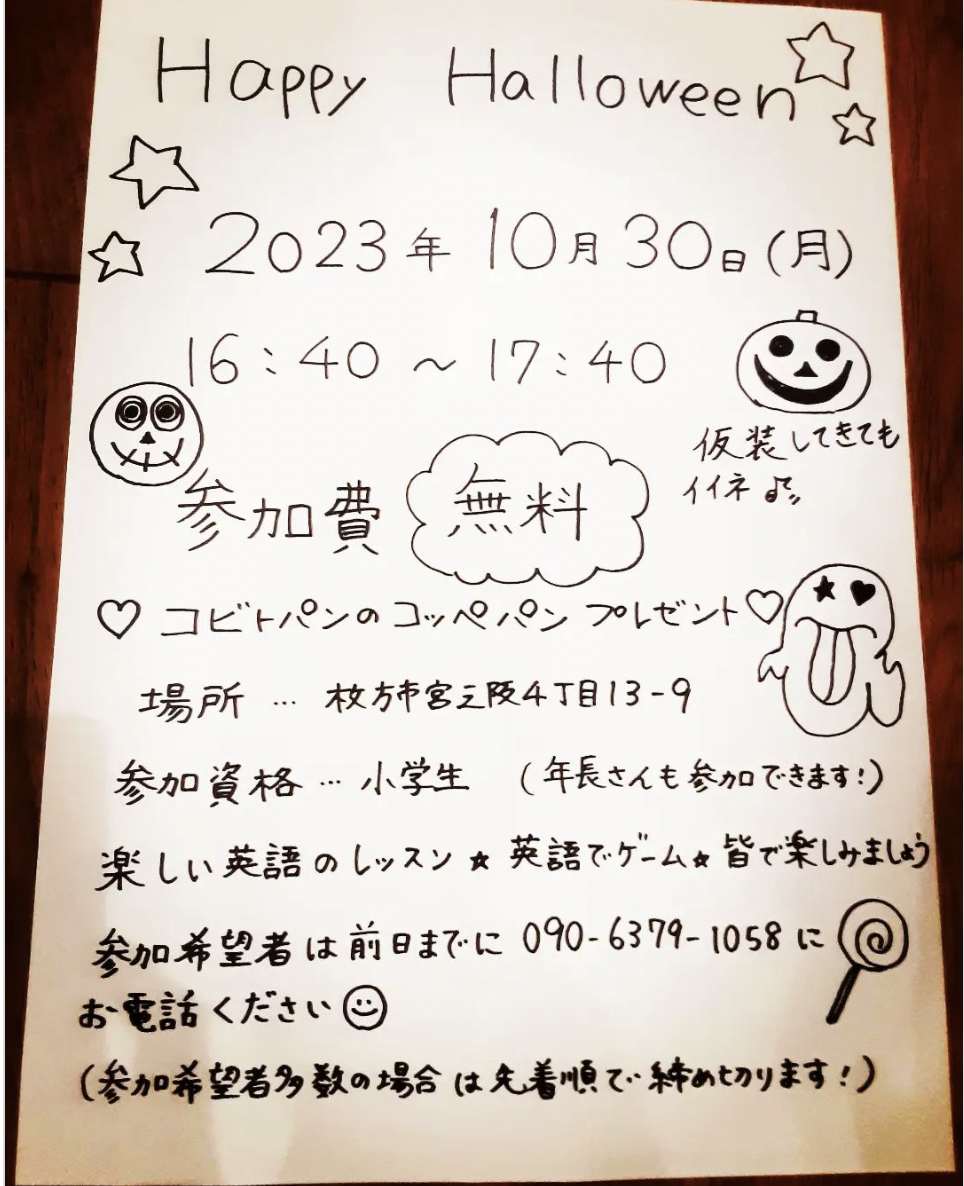 Happy Halloween
2023年 10月30日(月)
16:40 ~ 17:40
仮装してきても
イイネ♪
参加費 無料
♡ コビトパンのコッペパン プレゼント♡
場所 … 枚方市宮之阪4丁目13-9
参加資格 … 小学生 (年長さんも参加できます!)
楽しい英語のレッスン★英語でゲーム★皆で楽しみましょう
参加希望者は前日までに 090-6379-1058 に
お電話ください☺
(参加希望者多数の場合は先着順で締め切ります!)